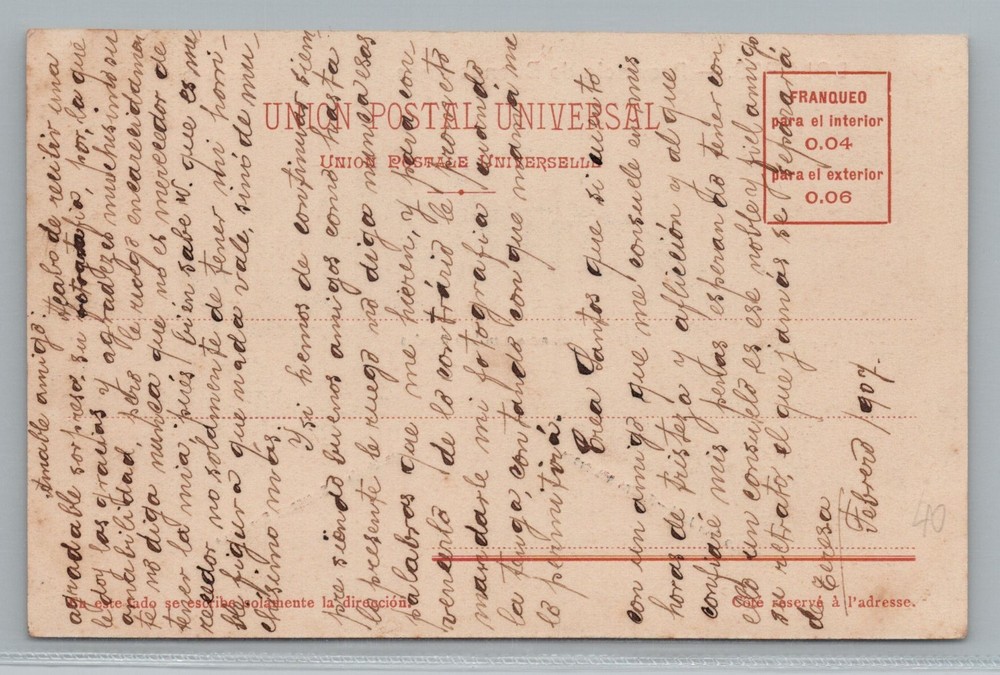 UNION POSTAL UNIVERSAL
UNION POSTALE UNIVERSELLE
FRANQUEO
para el interior
0.04
para el exterior
0.06
Amable amigo:
Acabo de recibir una
agradable sorpresa, su fotografía, por la que
le doy las gracias y agradezco muchísimo su
amabilidad, pero le ruego encarecidamen-
te no diga nunca que no es merecedor de
tener la mía; pués bien sabe V. que es me-
recedor no solamente de tener mi hori-
ble figura que nada vale, sinó de mu-
chísimo más.
Y si hemos de continuar siem-
pre siendo buenos amigos como hasta
la presente le ruego no diga nunca esas
palabras que me hieren, y para con-
vencerlo de lo contrário le prometo
mandarle mi fotografia cuando
la tenga, contando con que mamá me
lo permitirá.
Crea Santos que si cuento
con un amigo que me consuele en mis
horas de tristeza y aflicción y al que
confiaré mis penas esperando tener con
ello un consuelo es ése noble y fiel amigo
su retrato, el que jamás se separará
de Teresa
Febrero 1907.
40
En este lado se escribe solamente la dirección
Coté réservé à l'adresse.